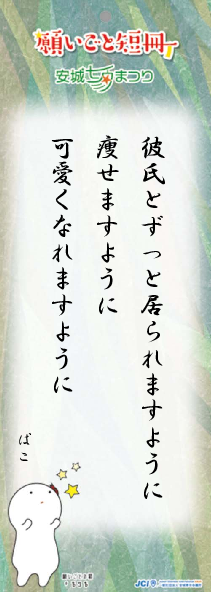 願いごと短冊
安城七夕まつり
彼氏とずっと居られますように
痩せますように
可愛くなれますように
ばこ
JCI